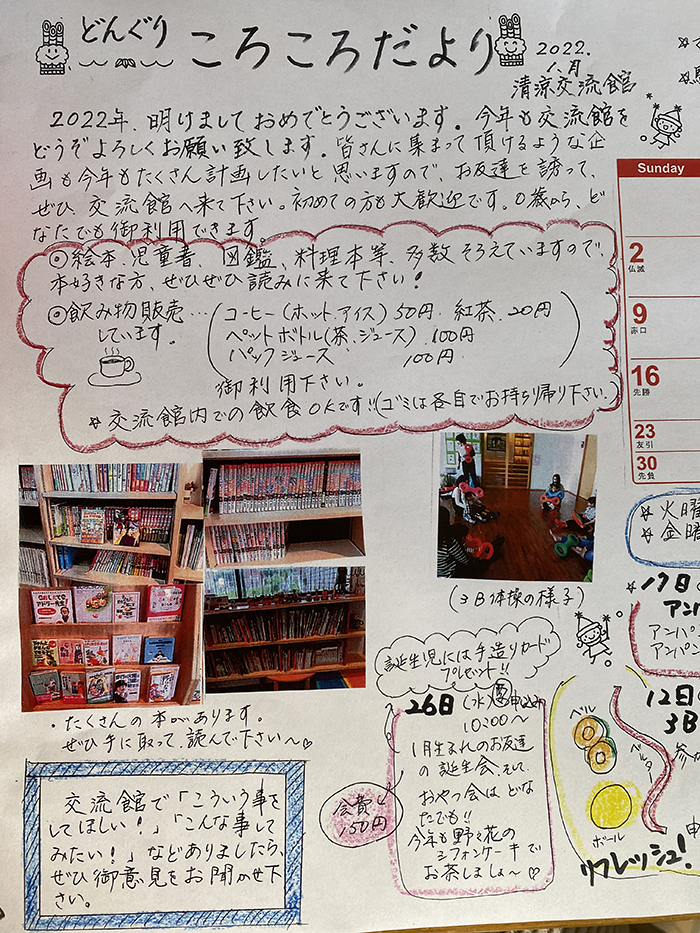 どんぐり ころころだより
2022.
1月
清涼交流館
2022年、明けましておめでとうございます。今年も交流館を
どうぞよろしくお願い致します。皆さんに集まって頂けるような企
画も今年もたくさん計画したいと思いますので、お友達を誘って、
ぜひ、交流館へ来て下さい。初めての方も大歓迎です。0歳から、ど
なたでも御利用できます。
◎絵本、児童書、図鑑、料理本等、多数そろえていますので、
本好きな方、ぜひぜひ読みに来て下さい！
◎飲み物販売…
しています。
コーヒー(ホット、アイス)50円、紅茶、20円
ペットボトル(茶、ジュース)100円
パックジュース 100円
御利用下さい。
☆交流館内での飲食OKです!!(ゴミは各自でお持ち帰り下さい。)
Sunday
2
仏滅
9
赤口
16
先勝
23
友引
30
先負
☆火曜
☆金曜
(3B体操の様子)
・たくさんの本があります。
ぜひ手に取って、読んで下さい〜♡
誕生児には手造りカード
プレゼント!!
26日(水)
10:00〜
1月生まれのお友達
の誕生会、そして、
おやつ会はどな
たでも!!
今年も野々花の
シフォンケーキで
お茶しましょ〜♡
会費
150円
交流館で「こういう事を
してほしい！」「こんな事して
みたい！」などありましたら、
ぜひ御意見をお聞かせ下
さい。
☆17日
アン
アンパン
アンパン
12日
3B
参
ベル
ベルター
ボール
申
リフレッシュ!